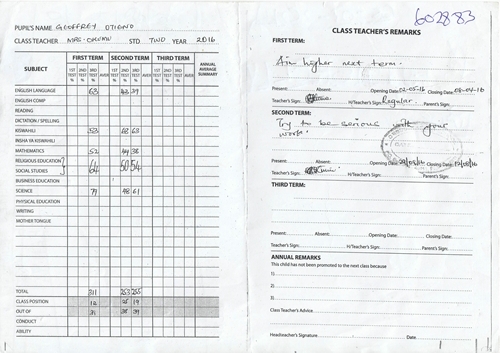 PUPIL'S NAME GEOFFREY OTIENO
CLASS TEACHER MRS. STD. TWO YEAR 2016
SUBJECT FIRST TERM SECOND TERM THIRD TERM ANNUAL AVERAGE SUMMARY
1ST TEST % 2ND TEST % 3RD TEST % AVER 1ST TEST % 2ND TEST % 3RD TEST % AVER 1ST TEST % 2ND TEST % 3RD TEST % AVER
ENGLISH LANGUAGE 63 43 39
ENGLISH COMP
READING
DICTATION / SPELLING
KISWAHILI 53 68 63
INSHA YA KISWAHILI
MATHEMATICS 52 44 38
RELIGIOUS EDUCATION
SOCIAL STUDIES 64 50 54
BUSINESS EDUCATION
SCIENCE 79 48 61
PHYSICAL EDUCATION
WRITING
MOTHER TONGUE
TOTAL 311 253 255
CLASS POSITION 12 25 19
OUT OF 31 38 39
CONDUCT
ABILITY
602883
CLASS TEACHER'S REMARKS
FIRST TERM:
Aim higher next term.
Present: Absent: Opening Date: 02-05-16 Closing Date: 08-04-16
Teacher's Sign: H/Teacher's Sign: Regular.
SECOND TERM:
Try to be serious with your
work.
Present: Absent: Opening Date: Closing Date: 12/08/16
Teacher's Sign: H/Teacher's Sign: Parent's Sign:
THIRD TERM:
Present: Absent: Opening Date: Closing Date:
Teacher's Sign: H/Teacher's Sign: Parent's Sign:
ANNUAL REMARKS
This child has not been promoted to the next class because
1)
2)
3)
Class Teacher's Advice
Headteacher's Signature Date